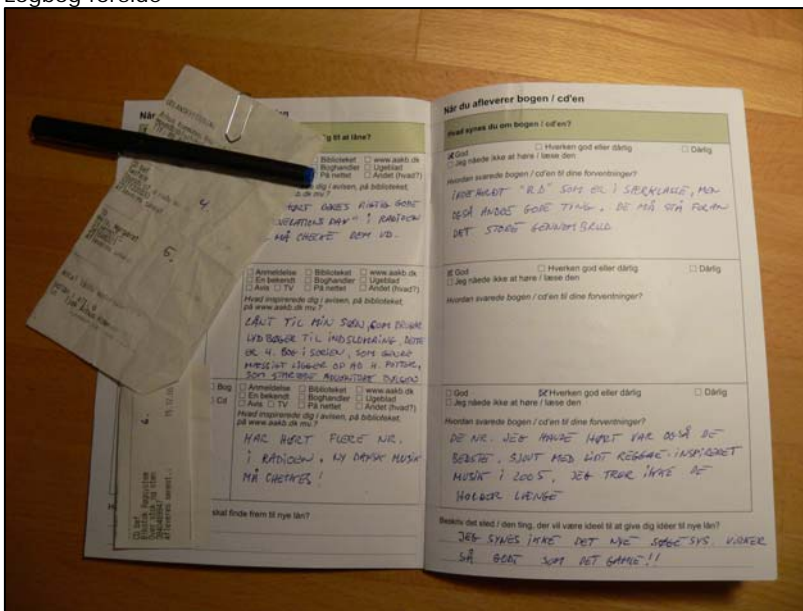 Når du
en
ig til at låne?
Biblioteket www.aakb.dk
Boghandler Ugeblad
På nettet Andet (hvad?)
dig i avisen, på biblioteket,
.dk mv ?
HØRT DERES RIGTIG GODE
" I RADIOEN
MÅ CHECKE DEM UD.
Anmeldelse Biblioteket www.aakb.dk
En bekendt Boghandler Ugeblad
Avis TV På nettet Andet (hvad?)
Hvad inspirerede dig i avisen, på biblioteket,
på www.aakb.dk mv ?
LÅNT TIL MIN SØN, SOM BRUGER
LYDBØGER TIL INDSLUMRING, DETTE
ER 4. BOG I SERIEN, SOM GENRE
MÆSSIGT LIGGER OP AD H. POTTER,
SOM STARTEDE
Bog Anmeldelse Biblioteket www.aakb.dk
Cd En bekendt Boghandler Ugeblad
Avis TV På nettet Andet (hvad?)
Hvad inspirerede dig i avisen, på biblioteket,
på www.aakb.dk mv ?
HAR HØRT FLERE NR.
I RADIOEN. NY DANSK MUSIK
MÅ CHECKES!
skal finde frem til nye lån?
4.
5.
6.
CD bet
Afleveres senest
Når du afleverer bogen / cd'en
Hvad synes du om bogen / cd'en?
God Hverken god eller dårlig Dårlig
Jeg nåede ikke at høre / læse den
Hvordan svarede bogen / cd'en til dine forventninger?
INDEHOLDT "R.D" SOM ER I SÆRKLASSE, MEN
OGSÅ ANDRE GODE TING. DE MÅ STÅ FORAN
DET STORE GENNEMBRUD
God Hverken god eller dårlig Dårlig
Jeg nåede ikke at høre / læse den
Hvordan svarede bogen / cd'en til dine forventninger?
God Hverken god eller dårlig Dårlig
Jeg nåede ikke at høre / læse den
Hvordan svarede bogen / cd'en til dine forventninger?
DE NR. JEG HAVDE HØRT VAR OGSÅ DE
BEDSTE. SJOVT MED LIDT REGGAE-INSPIRERET
MUSIK I 2005, JEG TROR IKKE DE
HOLDER LÆNGE
Beskriv det sted / den ting, der vil være ideel til at give dig idéer til nye lån?
JEG SYNES IKKE DET NYE SØGE SYS. VIRKER
SÅ GODT SOM DET GAMLE!!